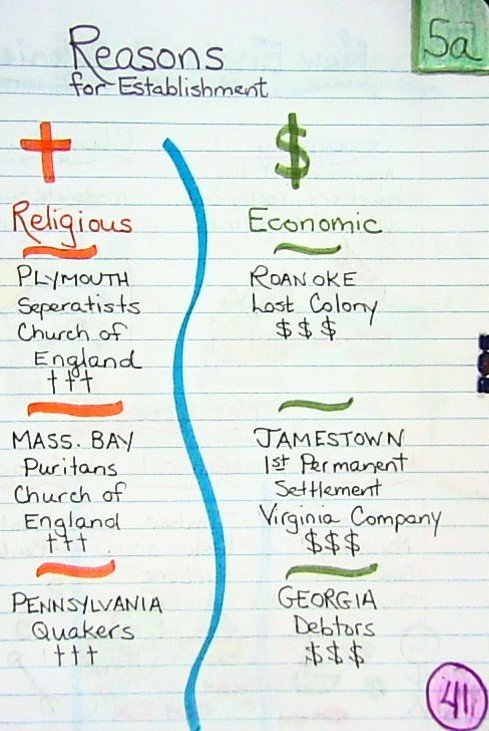 5a
Reasons
for Establishment
$
Religious
PLYMOUTH
Seperatists
Church of
England
†††
MASS. BAY
Puritans
Church of
England
†††
PENNSYLVANIA
Quakers
†††
Economic
ROANOKE
Lost Colony
$$$
JAMESTOWN
1st Permanent
Settlement
Virginia Company
$$$
GEORGIA
Debtors
$$$
41